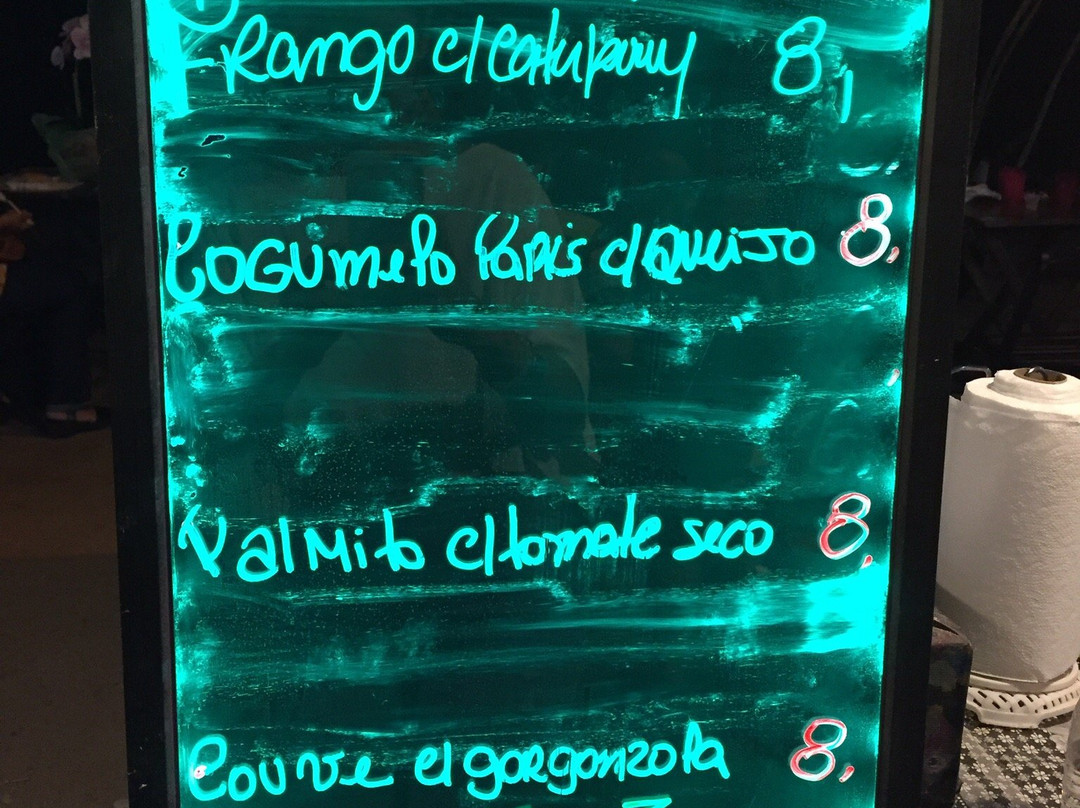 Frango c/ Catupiry 8,
COGUMelo PARIS c/ QUeiJO 8,
PalMito c/ tomate seco 8,
Couve c/ gorgonzola 8,